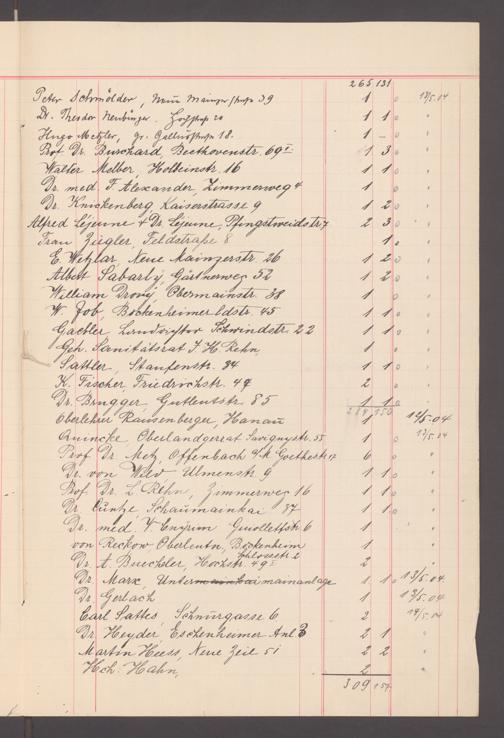 265 131
Peter Schmölder, Neue Mainzerstraße 39 1 0 12/5.04
Dr. Theodor Neubürger, 20 1 1 0 "
Hugo Metzler, gr. Gallusstraße 18. 1 – 0 "
Prof Dr. Burchard, Beethovenstr. 69 I 1 3 "
Walter Melber, Holbeinstr. 16 1 1 0 "
Dr. med. F. Alexander, Zimmerweg 4 1 0 "
Dr. Knickenberg, Kaiserstrasse 9 1 2 0 "
Alfred Lejeune & Dr. Lejeune, Pfingstweidstr 7 2 3 0 "
Frau Ziegler, Feldstraße 8 1 0 "
E. Wetzlar Neue Mainzerstr. 26 1 2 0 "
Albert Gärtnerweg 52 1 2 0 "
William Drory, Obermainstr. 38 1 0 "
W. Job, Bockenheimer Ldstr. 45 1 1 0 "
Gaebler, Schwindstr. 22 1 1 0 "
Geh. Sanitätsrat J. H. Rehn, 1 0 "
Sattler, Staufenstr. 34 1 1 0 "
K. Fischer Friedrichstr. 49 2 0 "
Dr. Brugger, Gutleutstr. 85 1 1 0
284 150
Oberlehrer Rausenberger, Hanau 1 12/5.04
Quincke, Oberlandgerrat Savignystr. 55 1 0 12/5.04
Prof Dr. Metz Offenbach a/M Goethestr 17 6 0 "
Dr. von Wild Ulmenstr. 9 1 1 0 "
Prof. Dr. L. Rehn, Zimmerweg 16 1 1 0 "
Dr Cuntze, Schaumainkai 87 1 1 0 "
Dr. med. Guiollettstr. 6 1 "
von Reckow, Oberleutn, Bockenheim 1 "
Schlossstr. 2
Dr. A. Buechler, Hochstr. 49 I 2 "
Dr. Marx, Untermainkaimainanlage 1 1 0 13/5.04.
Dr. Gerlach 1 13/5.04
Carl Sattes, Schnurgasse 6 2 14/5.04
Dr. Heyder, Eschenheimer Anl 3 2 1 "
Martin Heess, Neue Zeil 51 2 2 "
Hch. Hahn, 2 "
309 159